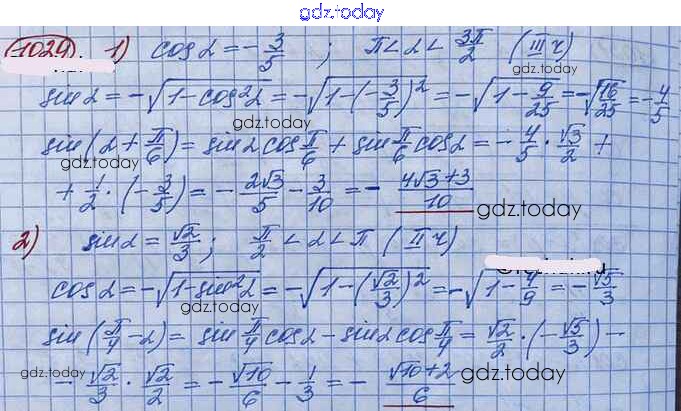 gdz.today
1029 1) cos α = -3/5 ; π < α < 3π/2 (III ч)
gdz.today
sin α = -√(1-cos²α) = -√(1-(-3/5)²) = -√(1-9/25) = -√(16/25) = -4/5
gdz.today
sin(α+π/6) = sin α cos π/6 + sin π/6 cos α = -4/5 · √3/2 +
gdz.today
+ 1/2 · (-3/5) = -2√3/5 - 3/10 = - (4√3+3)/10
gdz.today
2) sin α = √2/3 ; π/2 < α < π (II ч)
cos α = -√(1-sin²α) = -√(1-(√2/3)²) = -√(1-4/9) = -√5/3
gdz.today
sin(π/4-α) = sin π/4 cos α - sin α cos π/4 = √2/2 · (-√5/3) -
gdz.today
- √2/3 · √2/2 = -√10/6 - 1/3 = - (√10+2)/6
gdz.today
gdz.today